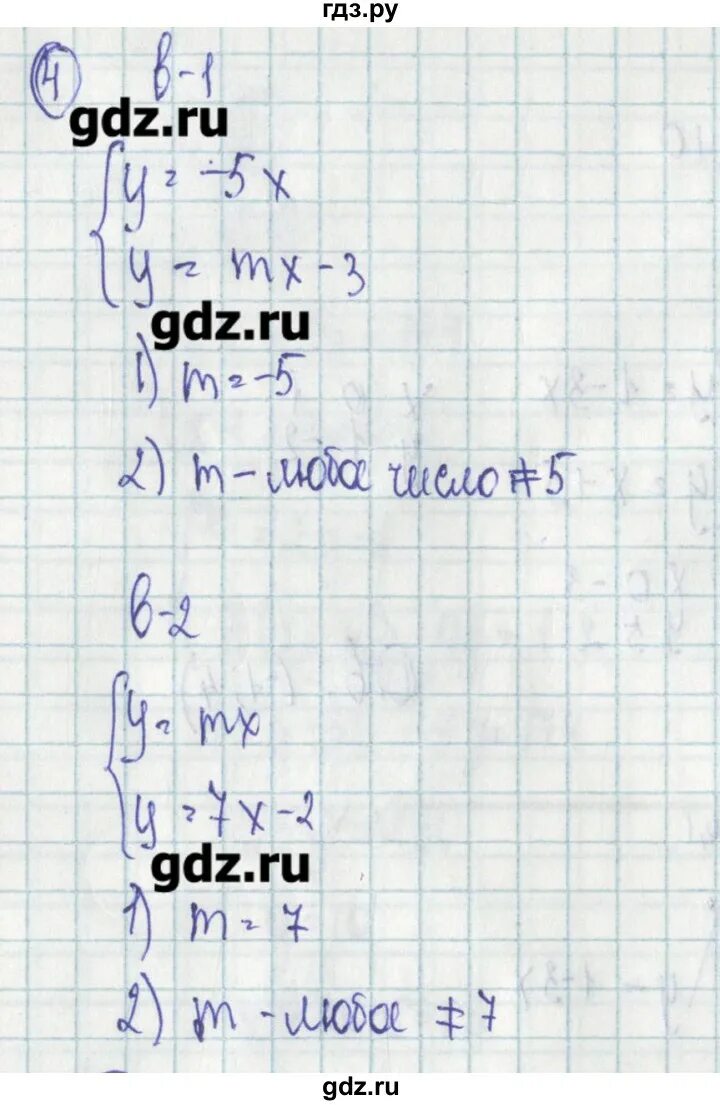 гдз.ру
4 в-1
gdz.ru
y = -5x
y = mx - 3
gdz.ru
1) m = -5
2) m - любое число ≠ 5
в-2
y = mx
y = 7x - 2
gdz.ru
1) m = 7
2) m - любое ≠ 7
gdz.ru